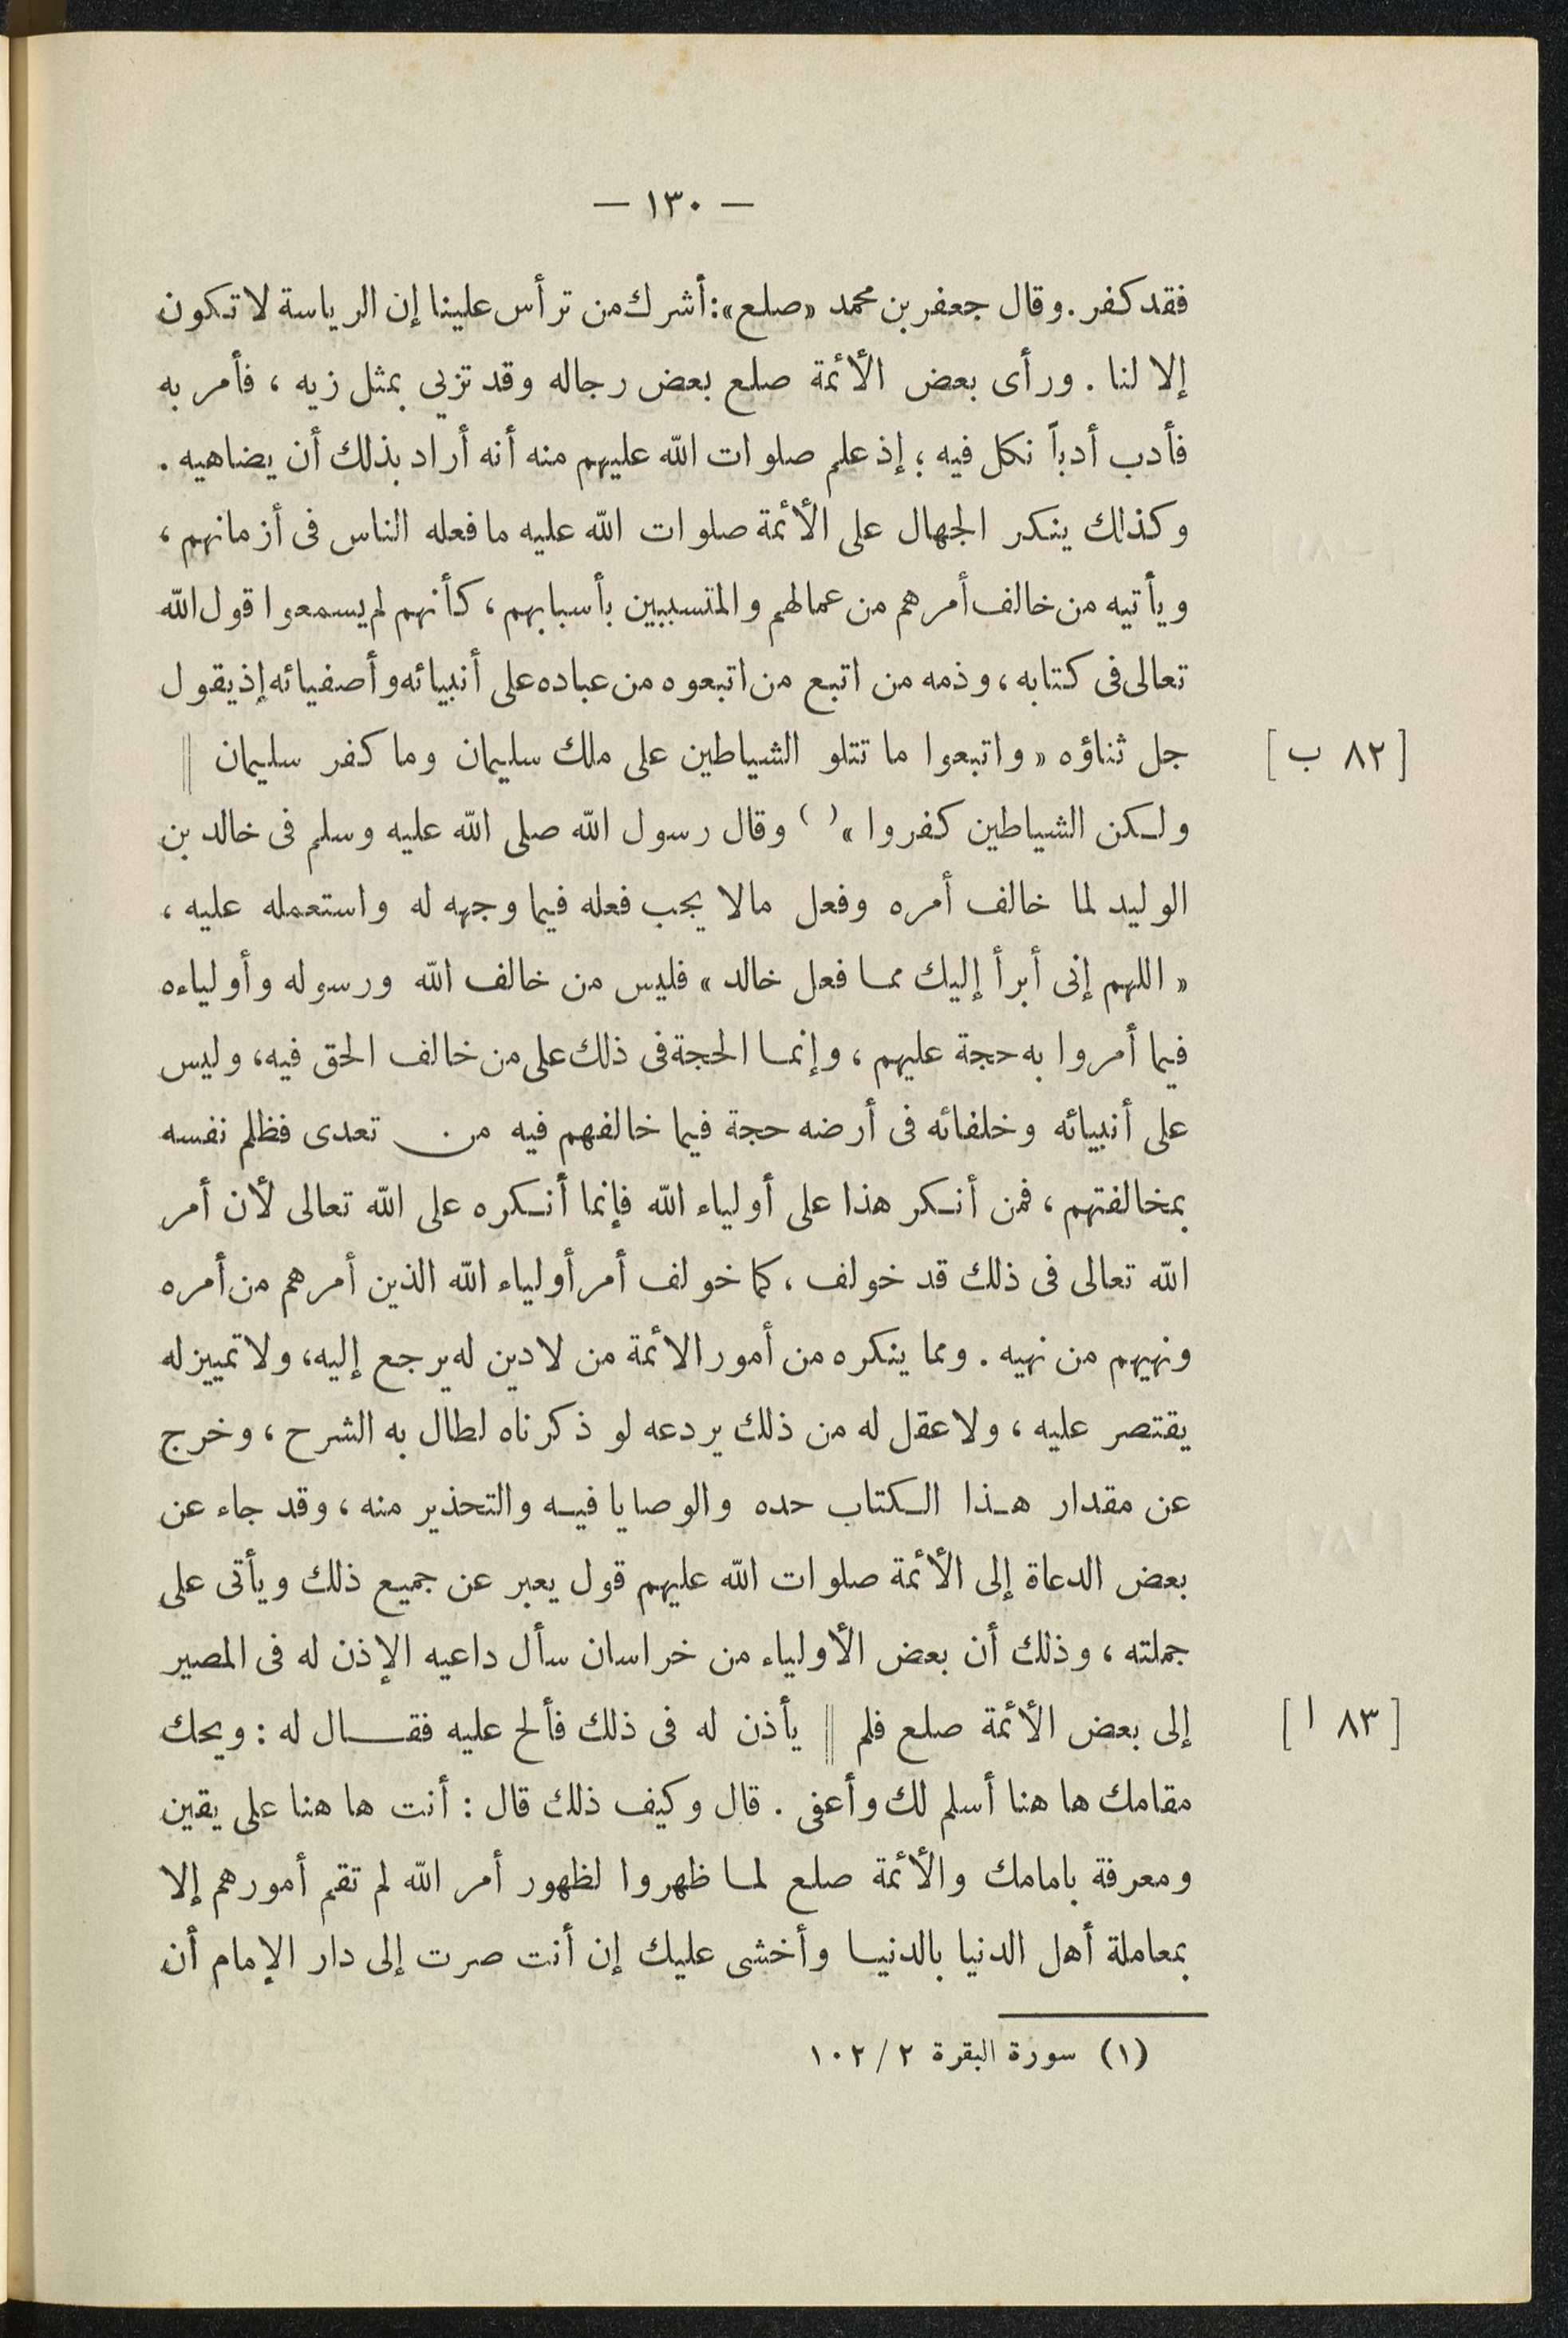 — ١٣٠ —
فقد كفر . وقال جعفر بن محمد « صلع » : أشرك من ترأس علينا إن الرياسة لا تكون
إلا لنا . ورأى بعض الأئمة صلع بعض رجاله وقد تزيى بمثل زيه ، فأمر به
فأدب أدباً نكل فيه ؛ إذ علم صلوات الله عليهم منه أنه أراد بذلك أن يضاهيه .
وكذلك ينكر الجهال على الأئمة صلوات الله عليه ما فعله الناس فى أزمانهم ،
ويأتيه من خالف أمرهم من عمالهم والمتسببين بأسبابهم ، كأنهم لم يسمعوا قول الله
تعالى فى كتابه ، وذمه من اتبع من اتبعوه من عباده على أنبيائه وأصفيائه إذ يقول
جل ثناؤه « واتبعوا ما تتلو الشياطين على ملك سليمان وما كفر سليمان || [ ٨٢ ب ]
ولكن الشياطين كفروا » ( ) وقال رسول الله صلى الله عليه وسلم فى خالد بن
الوليد لما خالف أمره وفعل مالا يجب فعله فيما وجهه له واستعمله عليه ،
« اللهم إنى أبرأ إليك مما فعل خالد » فليس من خالف الله ورسوله وأولياءه
فيما أمروا به حجة عليهم ، وإنما الحجة فى ذلك على من خالف الحق فيه ، وليس
على أنبيائه وخلفائه فى أرضه حجة فيما خالفهم فيه من تعدى فظلم نفسه
بمخالفتهم ، فمن أنكر هذا على أولياء الله فإنما أنكره على الله تعالى لأن أمر
الله تعالى فى ذلك قد خولف ، كما خولف أمر أولياء الله الذين أمرهم من أمره
ونهيهم من نهيه . ومما ينكره من أمور الائمة من لادين له يرجع إليه ، ولا تمييز له
يقتصر عليه ، ولا عقل له من ذلك يردعه لو ذكرناه لطال به الشرح ، وخرج
عن مقدار هذا الكتاب حده والوصايا فيه والتحذير منه ، وقد جاء عن
بعض الدعاة إلى الأئمة صلوات الله عليهم قول يعبر عن جميع ذلك ويأتى على
جملته ، وذلك أن بعض الأولياء من خراسان سأل داعيه الإذن له فى المصير
إلى بعض الأئمة صلع فلم || يأذن له فى ذلك فألح عليه فقال له : ويحك [ ٨٣ ا ]
مقامك ها هنا أسلم لك وأعفى . قال وكيف ذلك قال : أنت ها هنا على يقين
ومعرفة بامامك والأئمة صلع لما ظهروا لظهور أمر الله لم تقم أمورهم إلا
بمعاملة أهل الدنيا بالدنيا وأخشى عليك إن أنت صرت إلى دار الإمام أن
(١) سورة البقرة ٢ / ١٠٢